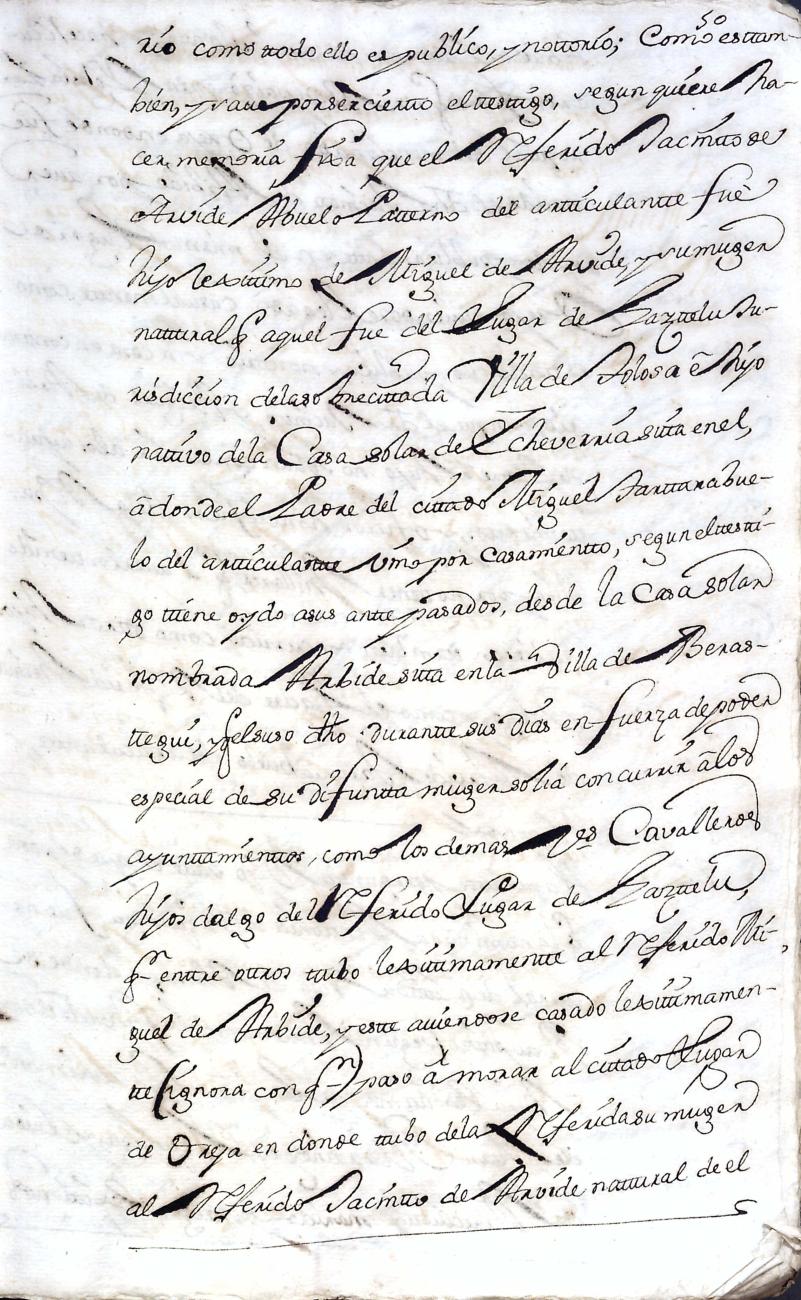 rio como ttodo ello es publico, y nottorio; Como es ttam-
bien, y save por ser cierto el testtigo, segun quiere ha-
cer memoria fixa que el Referido Jacintto de
Arvide Abuelo Patterno del articulantte fuè
hijo lexitimo de Miguel de Arvide, y su muger
nattural q̃ aquel fue del Lugar de Gaztelu Ju-
risdiccion de la sobrecittada Villa de Tolosa è hijo
nattivo de la Casa solar de Echeverria sitta en el,
à donde el Padre del cittado Miguel Tarttarabue-
lo del articulantte vino por Casamientto, segun el testti-
go ttiene oydo a sus antte pasados, desde la Casa solar
nombrada Arbide sitta en la Villa de Beras-
ttegui, y q̃ el suso dho durantte sus dias en fuerza de poder
especial de su difuntta muger solia concurrir à los
ayunttamienttos, como los demas Cavalleros
hijos dalgo del Referido Lugar de Gaztelu,
q̃ enttre ottros ttubo lexitimamentte al Referido Mi-
guel de Arbide, y estte aviendose casado lexitimamen-
tte (ignora con q̃n) paso à morar al cittado Lugar
de Oreja en donde ttubo de la Referida su muger
al Referido Jacintto de Arvide nattural de el